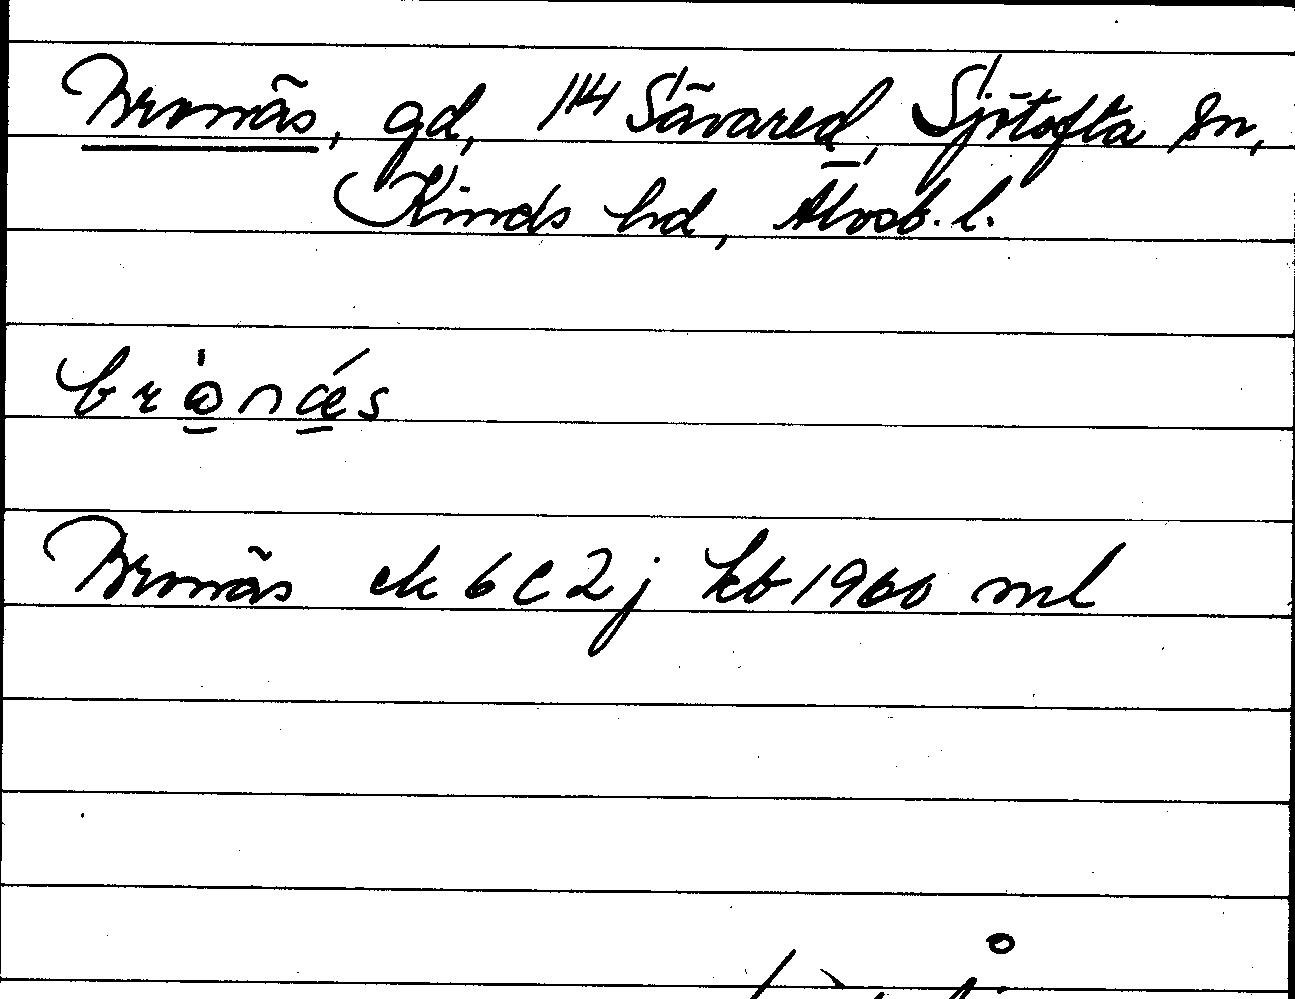 Bronäs, gd, 1/4 Sävared, Sjötofta sn,
Kinds hd, Älvsb. l.
Bronäs ek 6 C 2 j kb 1960 ml